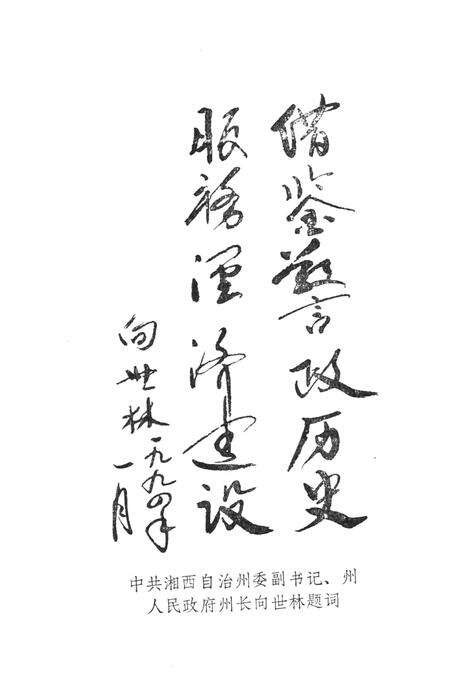 借鉴警政历史
服务经济建设
向世林一九九四年
一月
中共湘西自治州委副书记、州
人民政府州长向世林题词